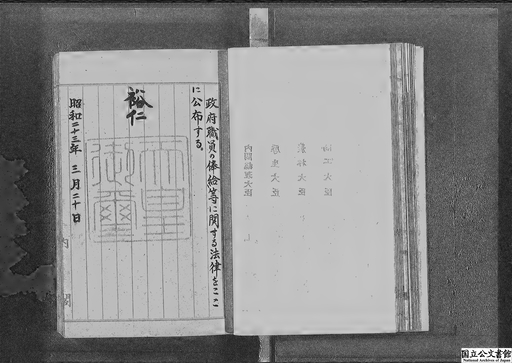 政府職員の俸給等に関する法律をここ
に公布する。
裕仁
天皇
御璽
昭和二十三年 三月二十日
内閣
大臣
農林大臣
厚生大臣
内閣総理大臣
国立公文書館
National Archives of Japan